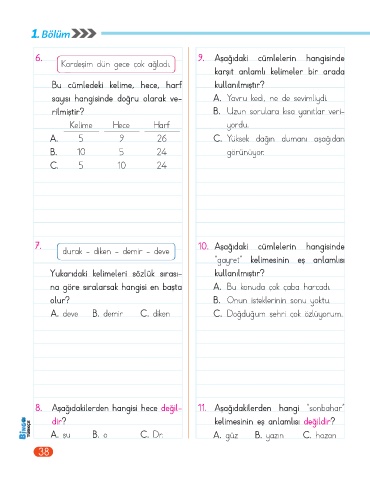 1. Bölüm
6.
Kardeşim dün gece çok ağladı.
Bu cümledeki kelime, hece, harf
sayısı hangisinde doğru olarak ve-
rilmiştir?
Kelime Hece Harf
A. 5 9 26
B. 10 5 24
C. 5 10 24
7.
durak - diken - demir - deve
Yukarıdaki kelimeleri sözlük sırası-
na göre sıralarsak hangisi en başta
olur?
A. deve B. demir C. diken
8. Aşağıdakilerden hangisi hece değil-
dir?
A. şu B. o C. Dr.
9. Aşağıdaki cümlelerin hangisinde
karşıt anlamlı kelimeler bir arada
kullanılmıştır?
A. Yavru kedi, ne de sevimliydi.
B. Uzun sorulara kısa yanıtlar veri-
yordu.
C. Yüksek dağın dumanı aşağıdan
görünüyor.
10. Aşağıdaki cümlelerin hangisinde
"gayret" kelimesinin eş anlamlısı
kullanılmıştır?
A. Bu konuda çok çaba harcadı.
B. Onun isteklerinin sonu yoktu.
C. Doğduğum şehri çok özlüyorum.
11. Aşağıdakilerden hangi "sonbahar"
kelimesinin eş anlamlısı değildir?
A. güz B. yazın C. hazan
BinGO
TÜRKÇE
38